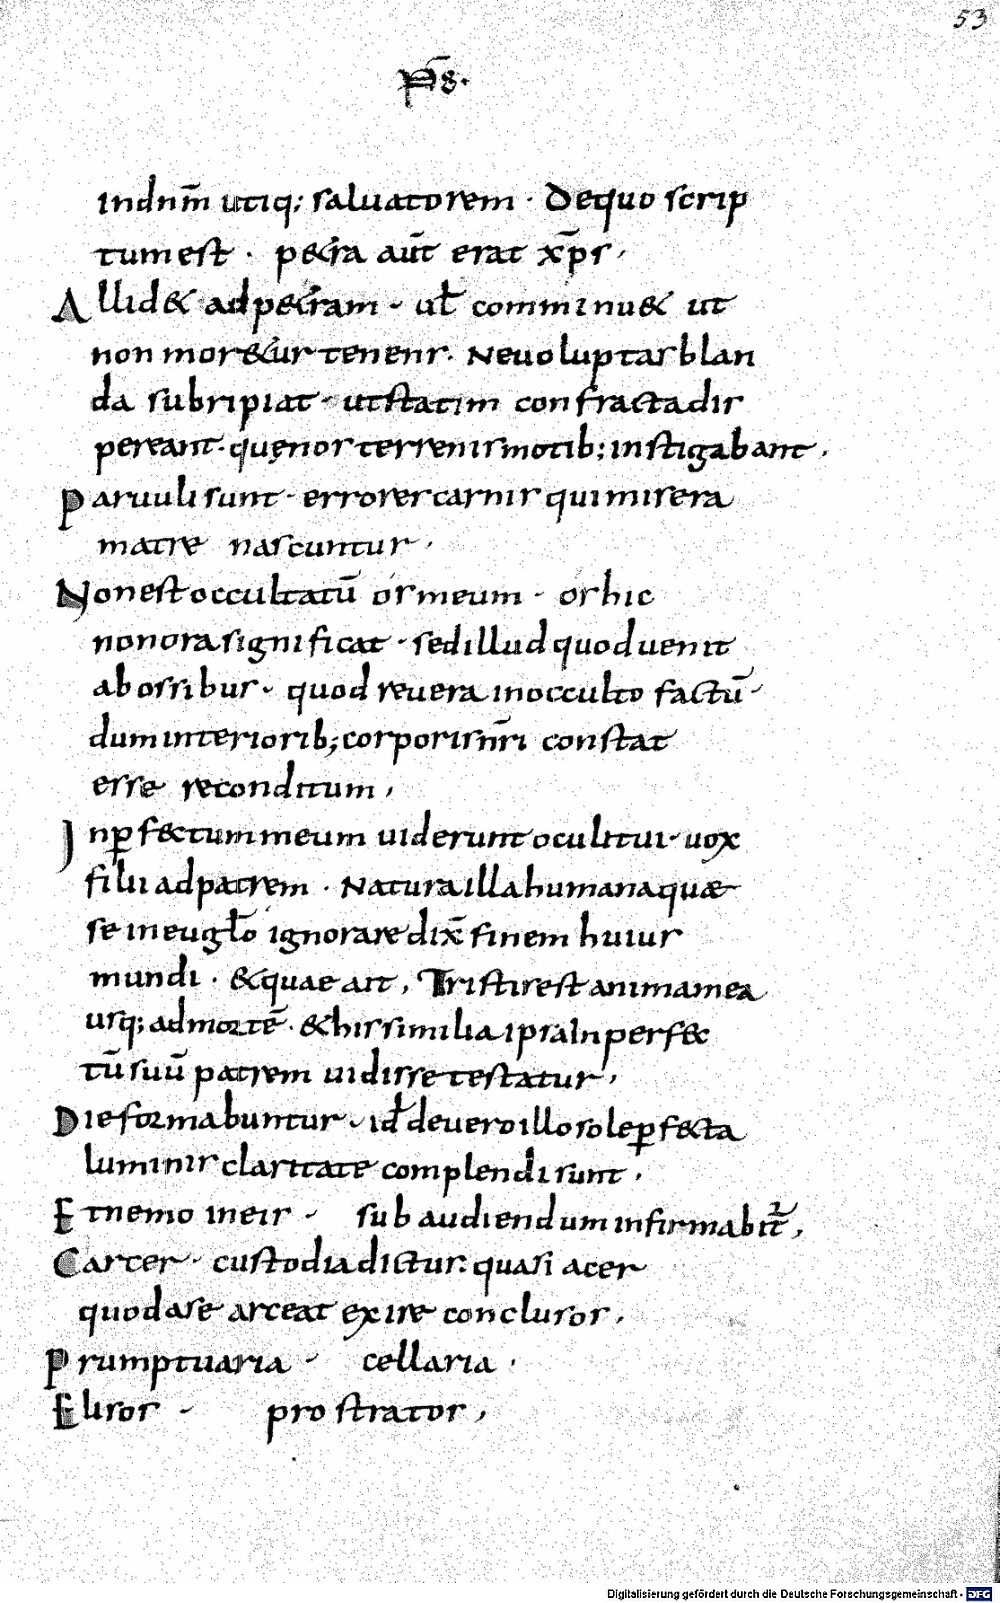 53
Ps̄.
indnm̄ utiq; saluatorem · De quo scrip
tum est · p&ra aut̄ erat xp̄s,
Allid& ad p&ram · ul̄ comminu& ut
non mor&ur teneris. Ne uoluptas blan
da subripiat · ut statim confracta dis
pereant · quę nos terrenis motib; instigabant,
Paruuli sunt · errores carnis qui misera
matre nascuntur,
Non est occultatū os meum · os hic
non ora significat · sed illud quod uenit
ab ossibus · quod reuera in occulto factū
dum interiorib; corporis nr̄i constat
esse reconditum,
Inꝑfectum meum uiderunt oculi tui · uox
filii ad patrem · Natura illa humana quae
se in eugl̄o ignorare dix̄ finem huius
mundi · & quae ait, Tristis est anima mea
usq; ad mortē · & his similia ipsa inperfec
tū suū patrem uidisse testatur,
Die formabuntur · id̄ de uero illo sole ꝑfecta
luminis claritate complendi sunt,
Et nemo in eis · subaudiendum infirmabit̄,
Carcer · custodia dictus: quasi acer
quod a se arceat exire conclusos,
Prumptuaria · cellaria,
Elisos · prostratos,
Digitalisierung gefördert durch die Deutsche Forschungsgemeinschaft - DFG